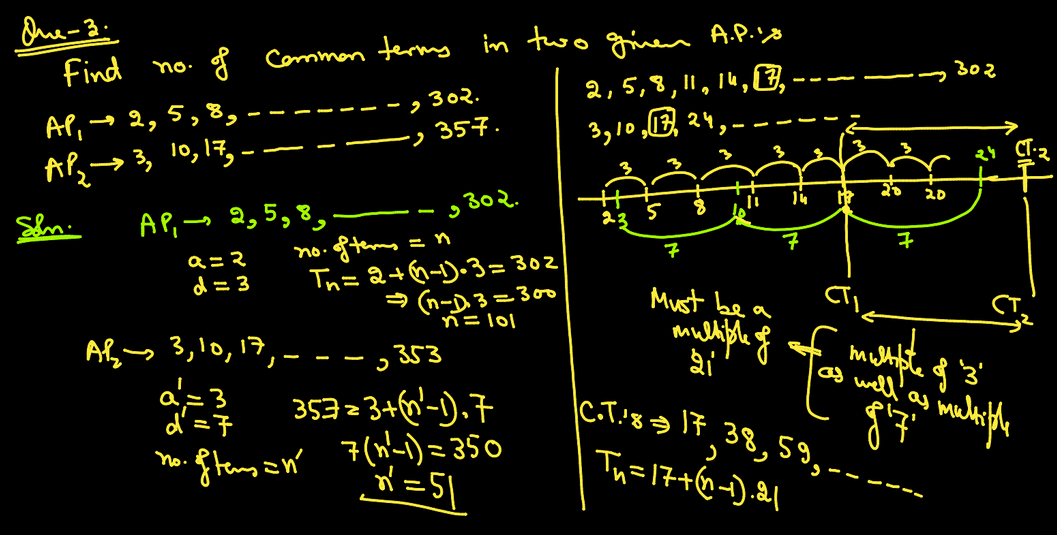 Que-3.
Find no. of common terms in two given A.P.'s
AP₁ → 2, 5, 8, --------, 302.
AP₂ → 3, 10, 17, -------, 357.
Soln. AP₁ → 2, 5, 8, -------, 302.
a = 2
d = 3
no. of terms = n
Tn = 2+(n-1)·3 = 302
⇒ (n-1).3 = 300
n = 101
AP₂ → 3, 10, 17, ----, 353
a' = 3
d' = 7
no. of terms = n'
357 = 3+(n'-1).7
7(n'-1) = 350
n' = 51
2, 5, 8, 11, 14, 17, ---------, 302
3, 10, 17, 24, --------
3 3 3 3 3 3 3
24 CT.2
2 3 5 8 10 11 14 17 20 20
7 7 7
CT₁ CT₂
Must be a
multiple of
21'
multiple of '3'
as well as multiple
of '7'
C.T.'s ⇒ 17, 38, 59, -------
Tn = 17+(n-1).21